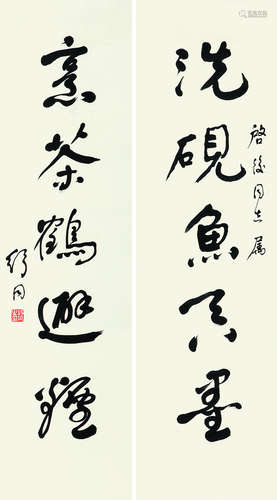 洗硯魚吞墨
啓後同志屬
烹茶鶴避煙
舒同